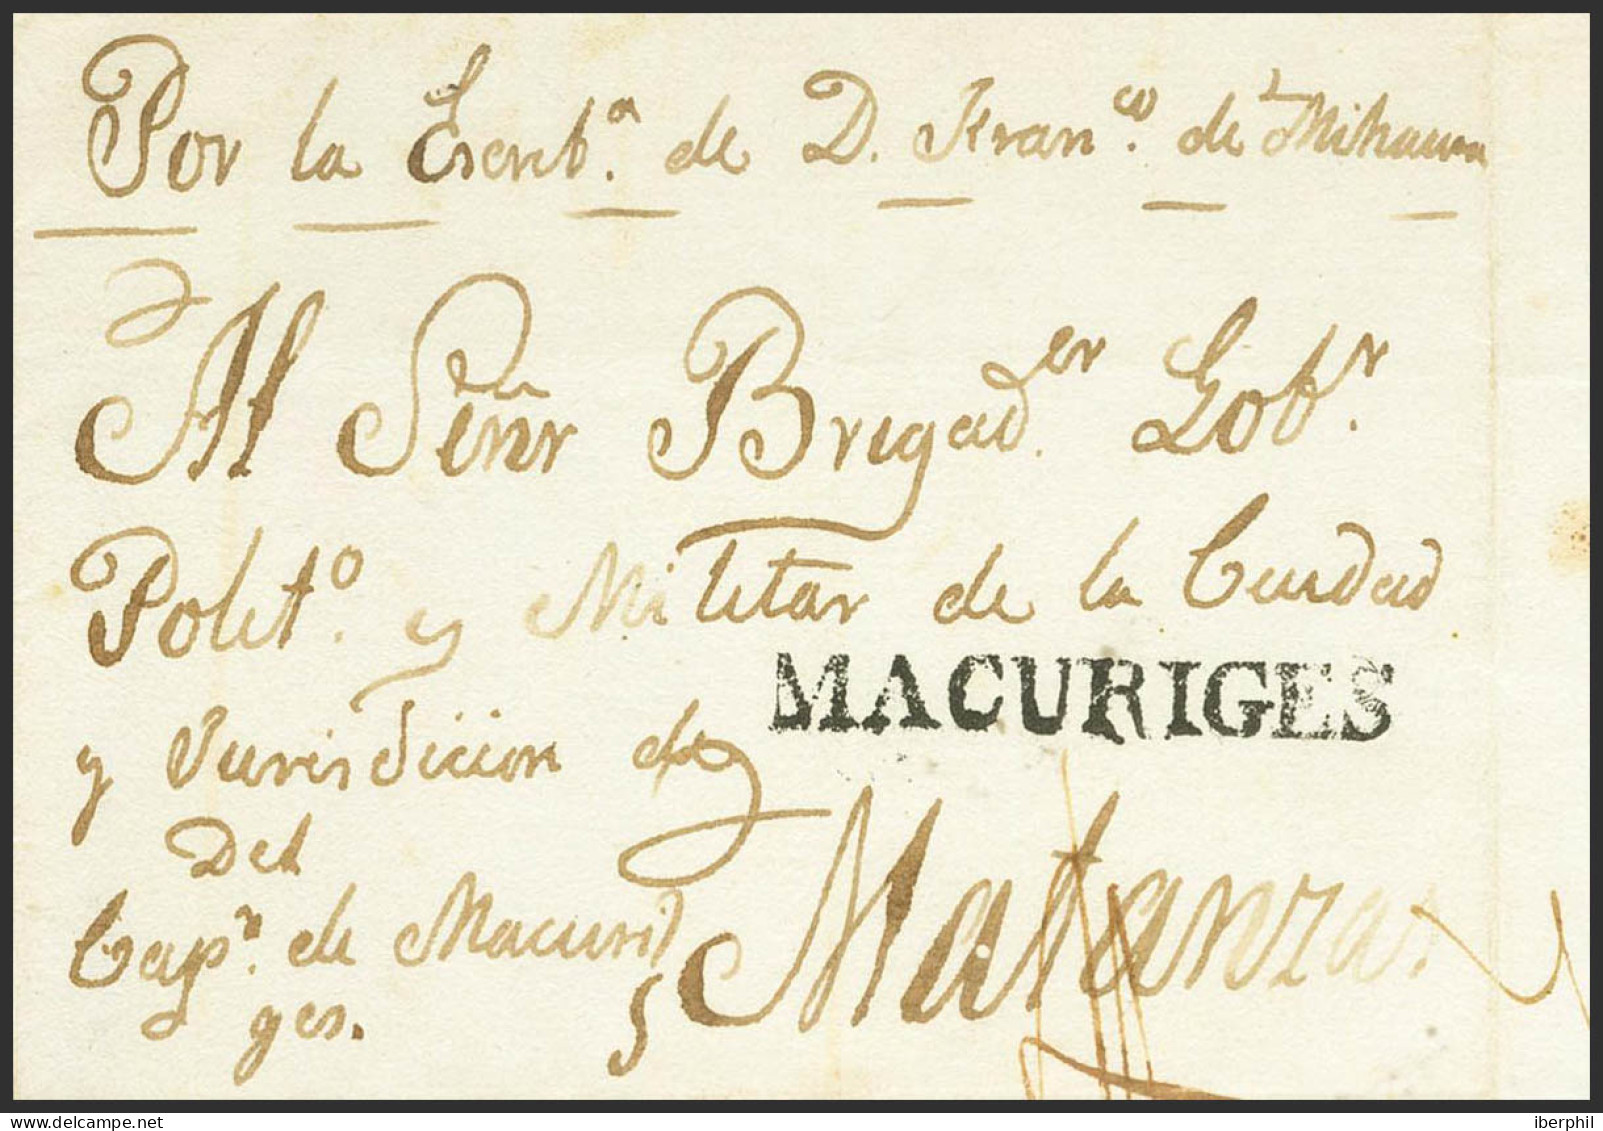 Por la Escrib.ª de D. Fran.co de
Al Señr Brigad.er Gob.r
Polit.o y Militar de la Ciudad
MACURIGES
y Jurisdicion de
Matanzas
Del
Cap.n de Macuri
ges.
iberphil